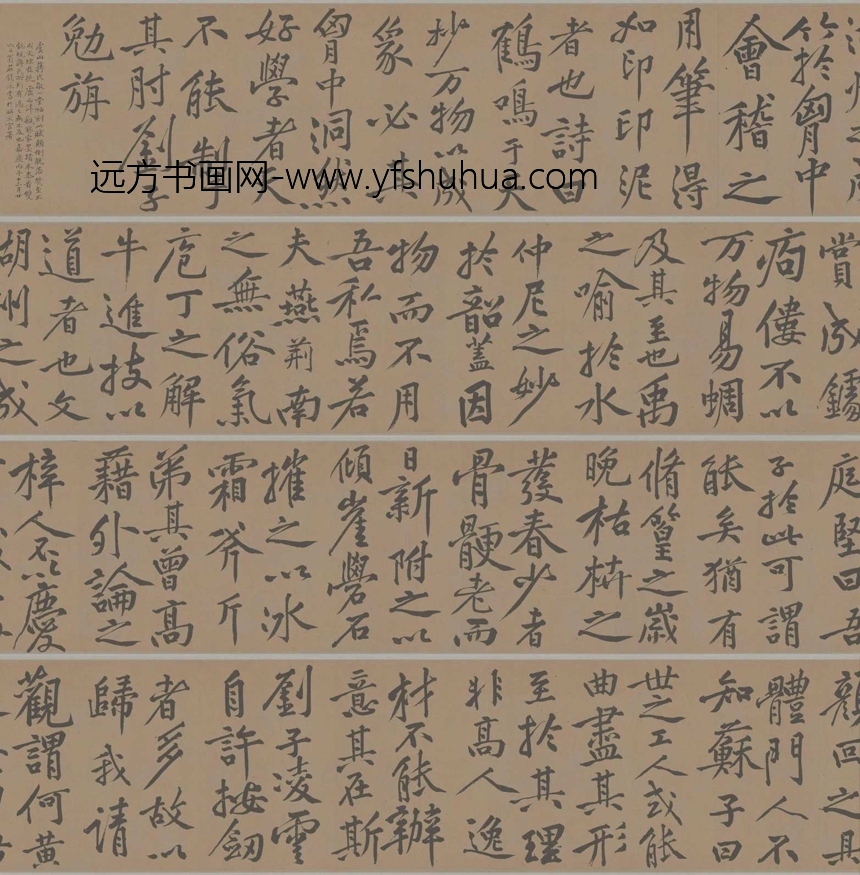 顏回之具
體門人不
知蘇子曰
世之工人或能
曲盡其形
至於其理
非高人逸
材不能辦
意其在斯
劉子凌雲
自許按劒
者多故以
歸我請
觀謂何黃
庭堅曰吾
子於此可謂
能矣猶有
脩篁之歲
晚枯枿之
發春少者
骨骾老而
日新附之以
傾崖礐石
摧之以冰
霜斧斤
第其曾高
藉外論之
梓人不以慶
賞成鐻
痀僂不以
万物易蜩
及其至也禹
之喻於水
仲尼之妙
於韶蓋因
物而不用
吾私焉若
夫燕荊南
之無俗氣
庖丁之解
牛進技以
道者也文
湖州之成
竹於胷中
會稽之
用筆得
如印印泥
者也詩曰
鶴鳴于天
妙万物以成
象必其
胷中洞然
好學者天
不能掣
其肘劉子
勉旃
远方书画网-www.yfshuhua.com